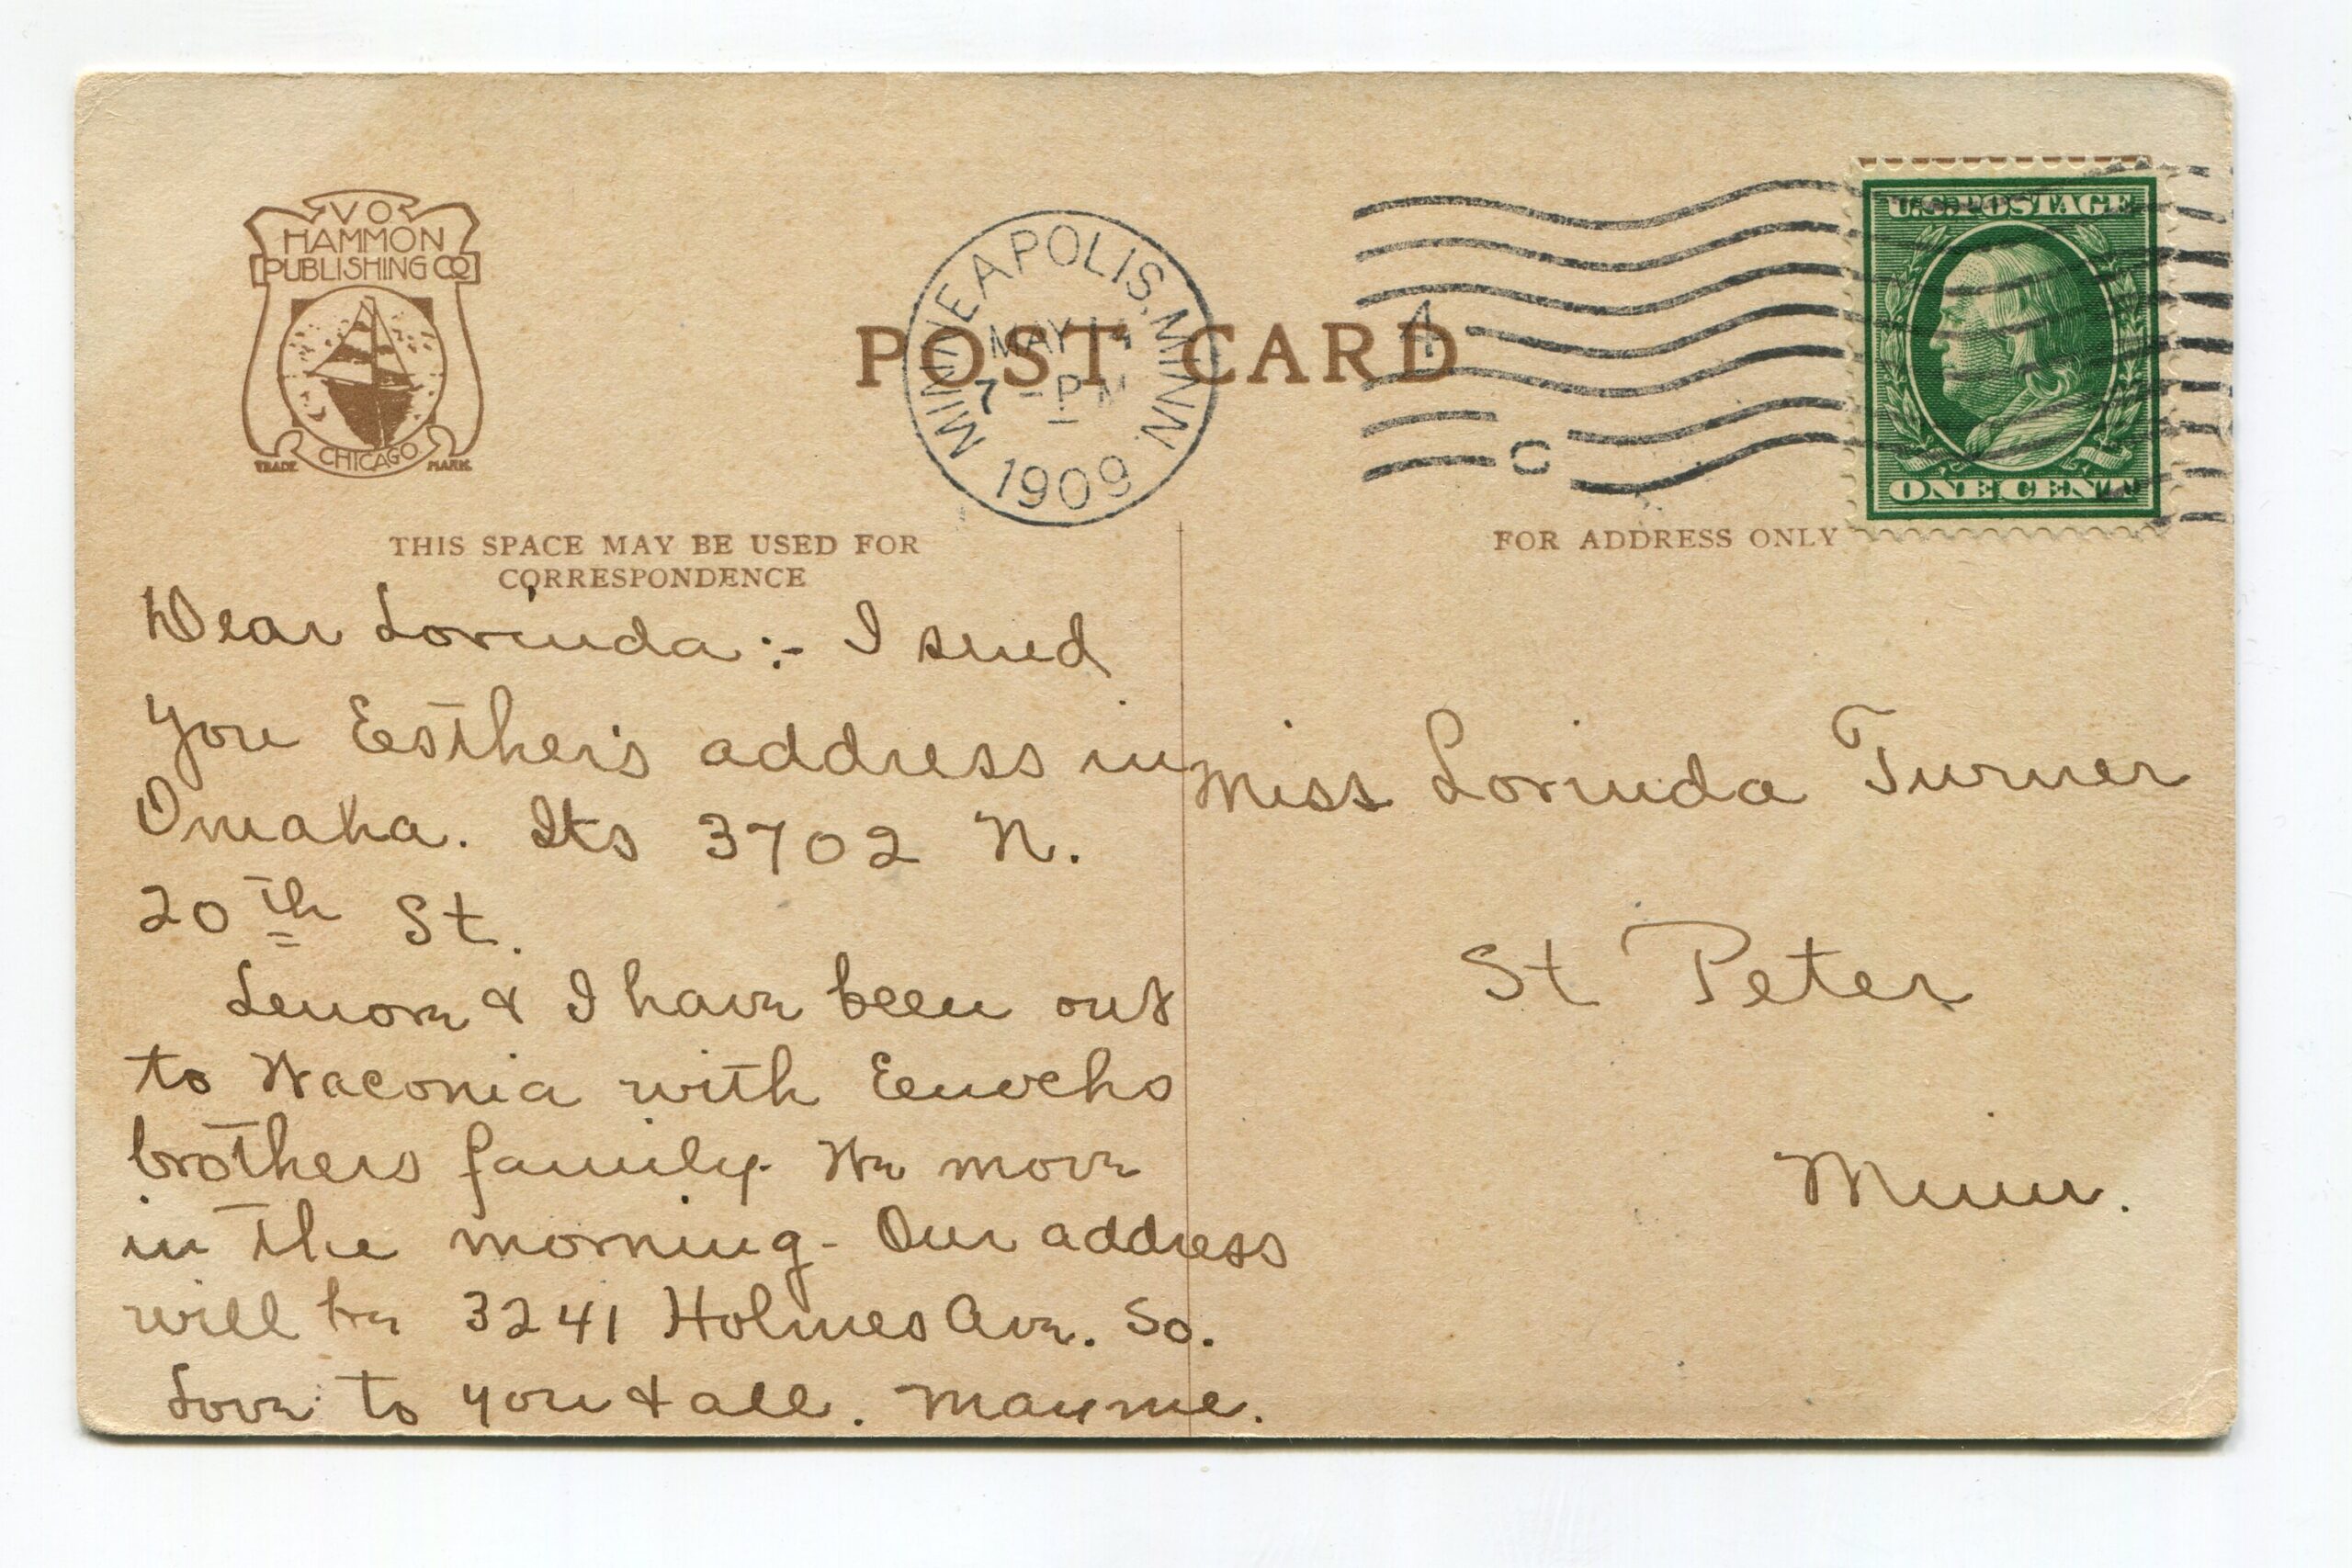 VO
HAMMON
PUBLISHING CO
TRADE CHICAGO MARK
POST CARD
MINNEAPOLIS, MINN.
MAY
7 - PM
1909
A
C
U.S. POSTAGE
ONE CENT
THIS SPACE MAY BE USED FOR
CORRESPONDENCE
Dear Lorinda :- I send
you Esther's address in
Omaha. Its 3702 N.
20th St.
Lenore & I have been out
to Waconia with Eenochs
brothers family. We move
in the morning - Our address
will be 3241 Holmes Ave. So.
Love to you & all. Mayme.
FOR ADDRESS ONLY
Miss Lorinda Turner
St Peter
Minn.